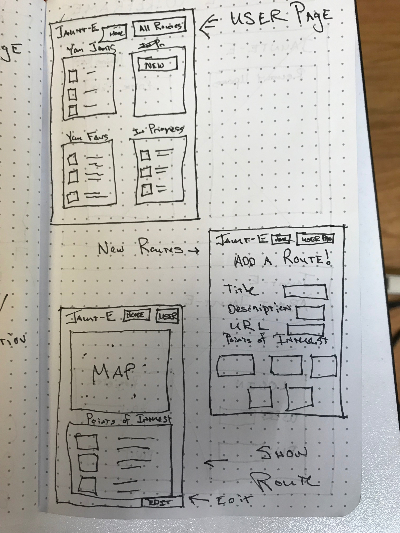 USER PAGE
JAUNT-E HOME All Routes
Your Jaunts
NEW
Your Favs In Progress
New Routes →
JAUNT-E HOME USER PAGE
ADD A ROUTE!
Title
Description
URL
Points of Interest
JAUNT-E HOME USER
MAP
Points of Interest
EDIT
SHOW
ROUTE
Edit